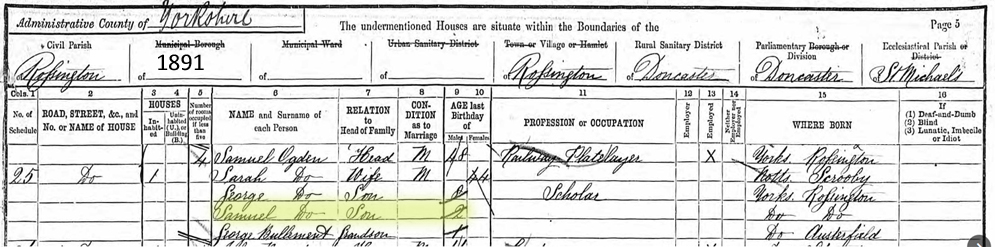 Administrative County of Yorkshire
The undermentioned Houses are situate within the Boundaries of the
Page 5
Civil Parish
Municipal Borough
Municipal Ward
Urban Sanitary District
Town or Village or Hamlet
Rural Sanitary District
Parliamentary Borough or Division
Ecclesiastical Parish or District
of Rossington
of 1891
of
of
of Rossington
of Doncaster
of Doncaster
of St Michaels
Cols. 1 2 3 4 5 6 7 8 9 10 11 12 13 14 15 16
No. of Schedule
ROAD, STREET, &c., and No. or NAME of HOUSE
HOUSES
Inhabited
Uninhabited (U.), or Building (B.)
Number of rooms occupied if less than five
NAME and Surname of each Person
RELATION to Head of Family
CONDITION as to Marriage
AGE last Birthday of
Males Females
PROFESSION or OCCUPATION
Employer
Employed
Neither Employer nor Employed
WHERE BORN
If
(1) Deaf-and-Dumb
(2) Blind
(3) Lunatic, Imbecile or Idiot
4 Samuel Ogden Head M 48 Railway Platelayer X Yorks. Rossington
25 Do 1 Sarah Do Wife M 44 Notts Scrooby
George Do Son Scholar Yorks. Rossington
Samuel Do Son 2 Do Do
George Bullement Grandson Do Austerfield